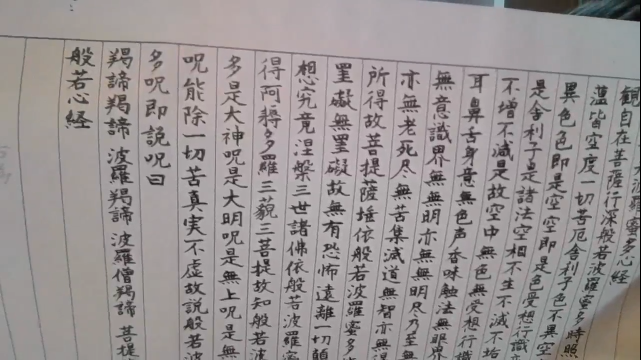 羅蜜多心経
観自在菩薩行深般若波羅蜜多時照
蘊皆空度一切苦厄舎利子色不異空
異色色即是空空即是色受想行識
是舎利子是諸法空相不生不滅不垢
不増不減是故空中無色無受想行識
耳鼻舌身意無色声香味触法無眼界
無意識界無無明亦無無明尽乃至無
亦無老死尽無苦集滅道無智亦無得
所得故菩提薩埵依般若波羅蜜多故
罣礙無罣礙故無有恐怖遠離一切顛
想究竟涅槃三世諸佛依般若波羅蜜
得阿耨多羅三藐三菩提故知般若波
多是大神呪是大明呪是無上呪是無
呪能除一切苦真実不虚故説般若波
多呪即説呪曰
羯諦羯諦 波羅羯諦 波羅僧羯諦 菩提
般若心経